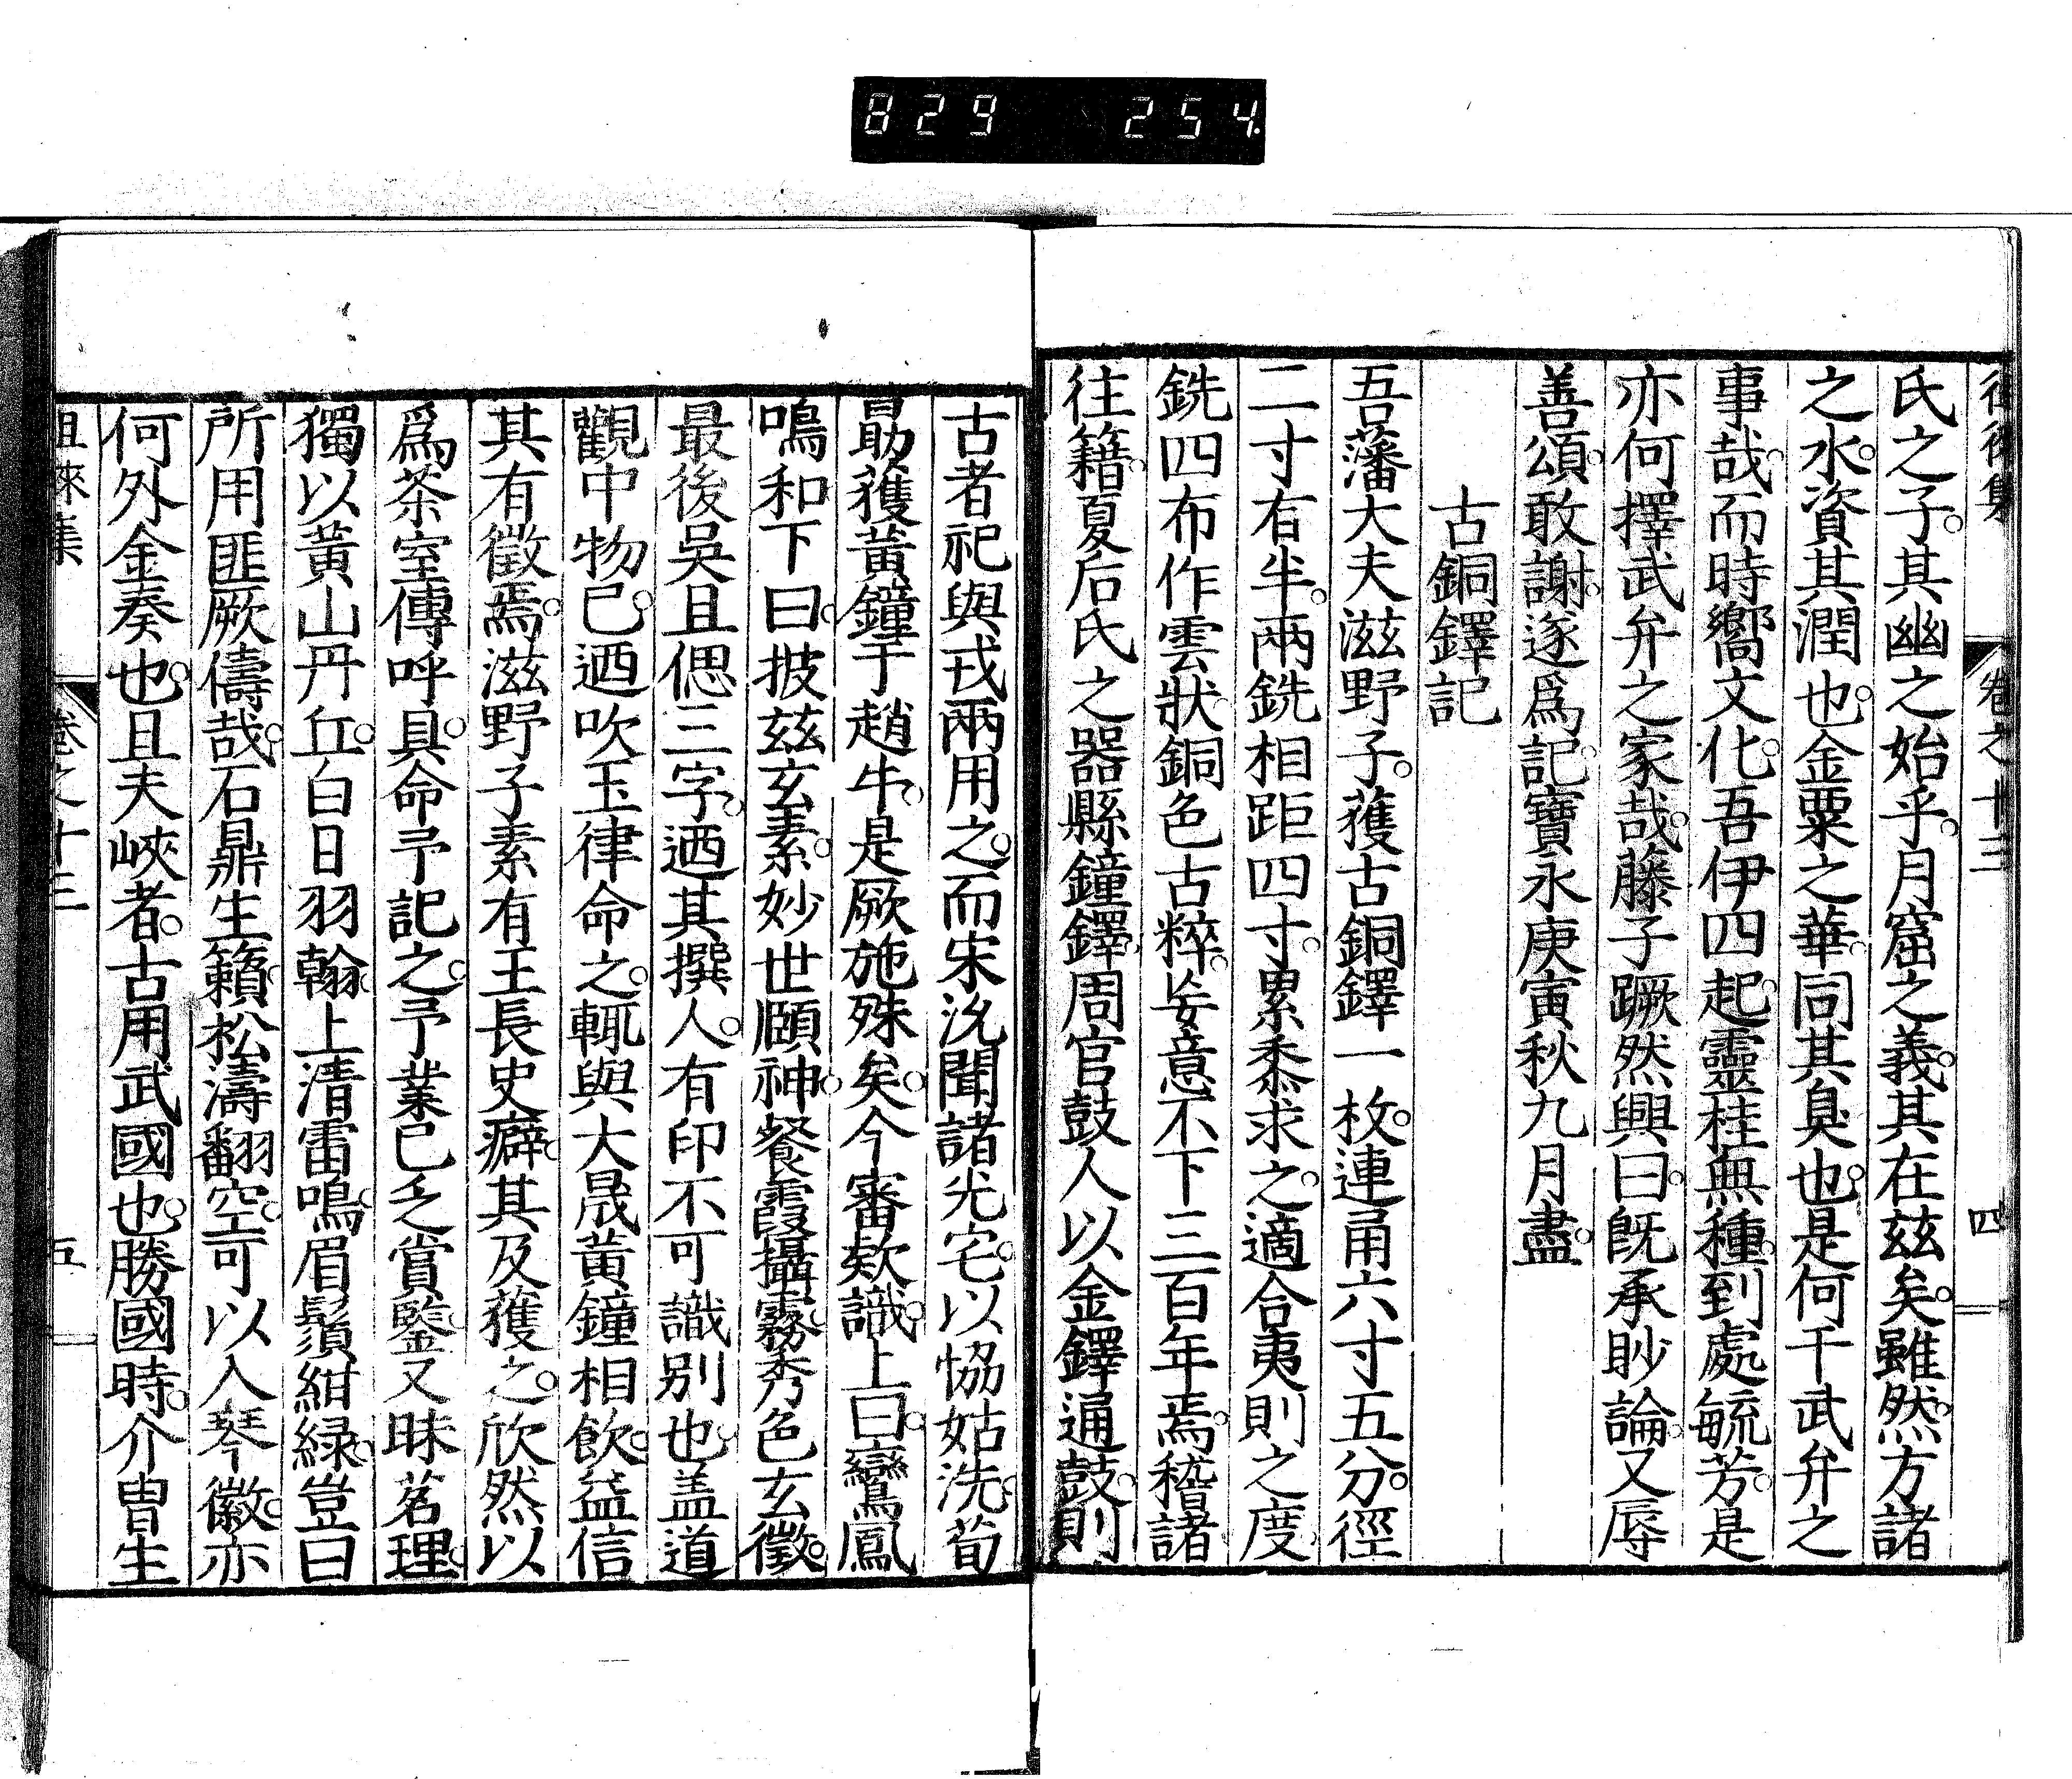 829 254.
徂徠集 卷之十三 四
氏之子。其幽之始乎。月窟之義。其在茲矣。雖然。方諸
之水。資其潤也。金粟之華。同其臭也。是何干武弁之
事哉。而時嚮文化。吾伊四起。靈桂無種。到處毓芳。是
亦何擇武弁之家哉。藤子蹶然興曰。旣承眇論。又辱
善頌。敢謝。遂爲記。寶永庚寅秋九月盡。
古銅鐸記
吾藩大夫滋野子。獲古銅鐸一枚。連甬六寸五分。徑
二寸右半。兩銑相距四寸。累黍求之。適合夷則之度
銑四布作雲狀。銅色古粹。妄意不下三百年焉。稽諸
往籍。夏后氏之器縣鐘鐸。周官鼓人以金鐸通鼓。則
古者祀與戎兩用之。而宋沇聞諸光宅。以恊姑洗。荀
勗獲黃鐘于趙牛。是厥施殊矣。今審欵識。上曰。鸞鳳
鳴和。下曰。披玆玄素。妙世頤神。餐霞攝霧。秀色玄徵。
最後吳且偲三字。迺其撰人。有印不可識別也。盖道
觀中物已。迺吹玉律命之。輒與大晟黃鐘相歛。益信
其有徵焉。滋野子素有王長史癖。其及獲之。欣然以
爲茶室傳呼具。命予記之。予業已乏賞鑒。又昧茗理。
獨以黃山丹丘。白日羽翰。上清雷鳴。眉鬚紺緑。豈曰
所用匪厥儔哉。石鼎生籟。松濤翻空。可以入琴徽。亦
何外金奏也。且夫峽者。古用武國也。勝國時。介冑生
徂徠集 卷之十三 五